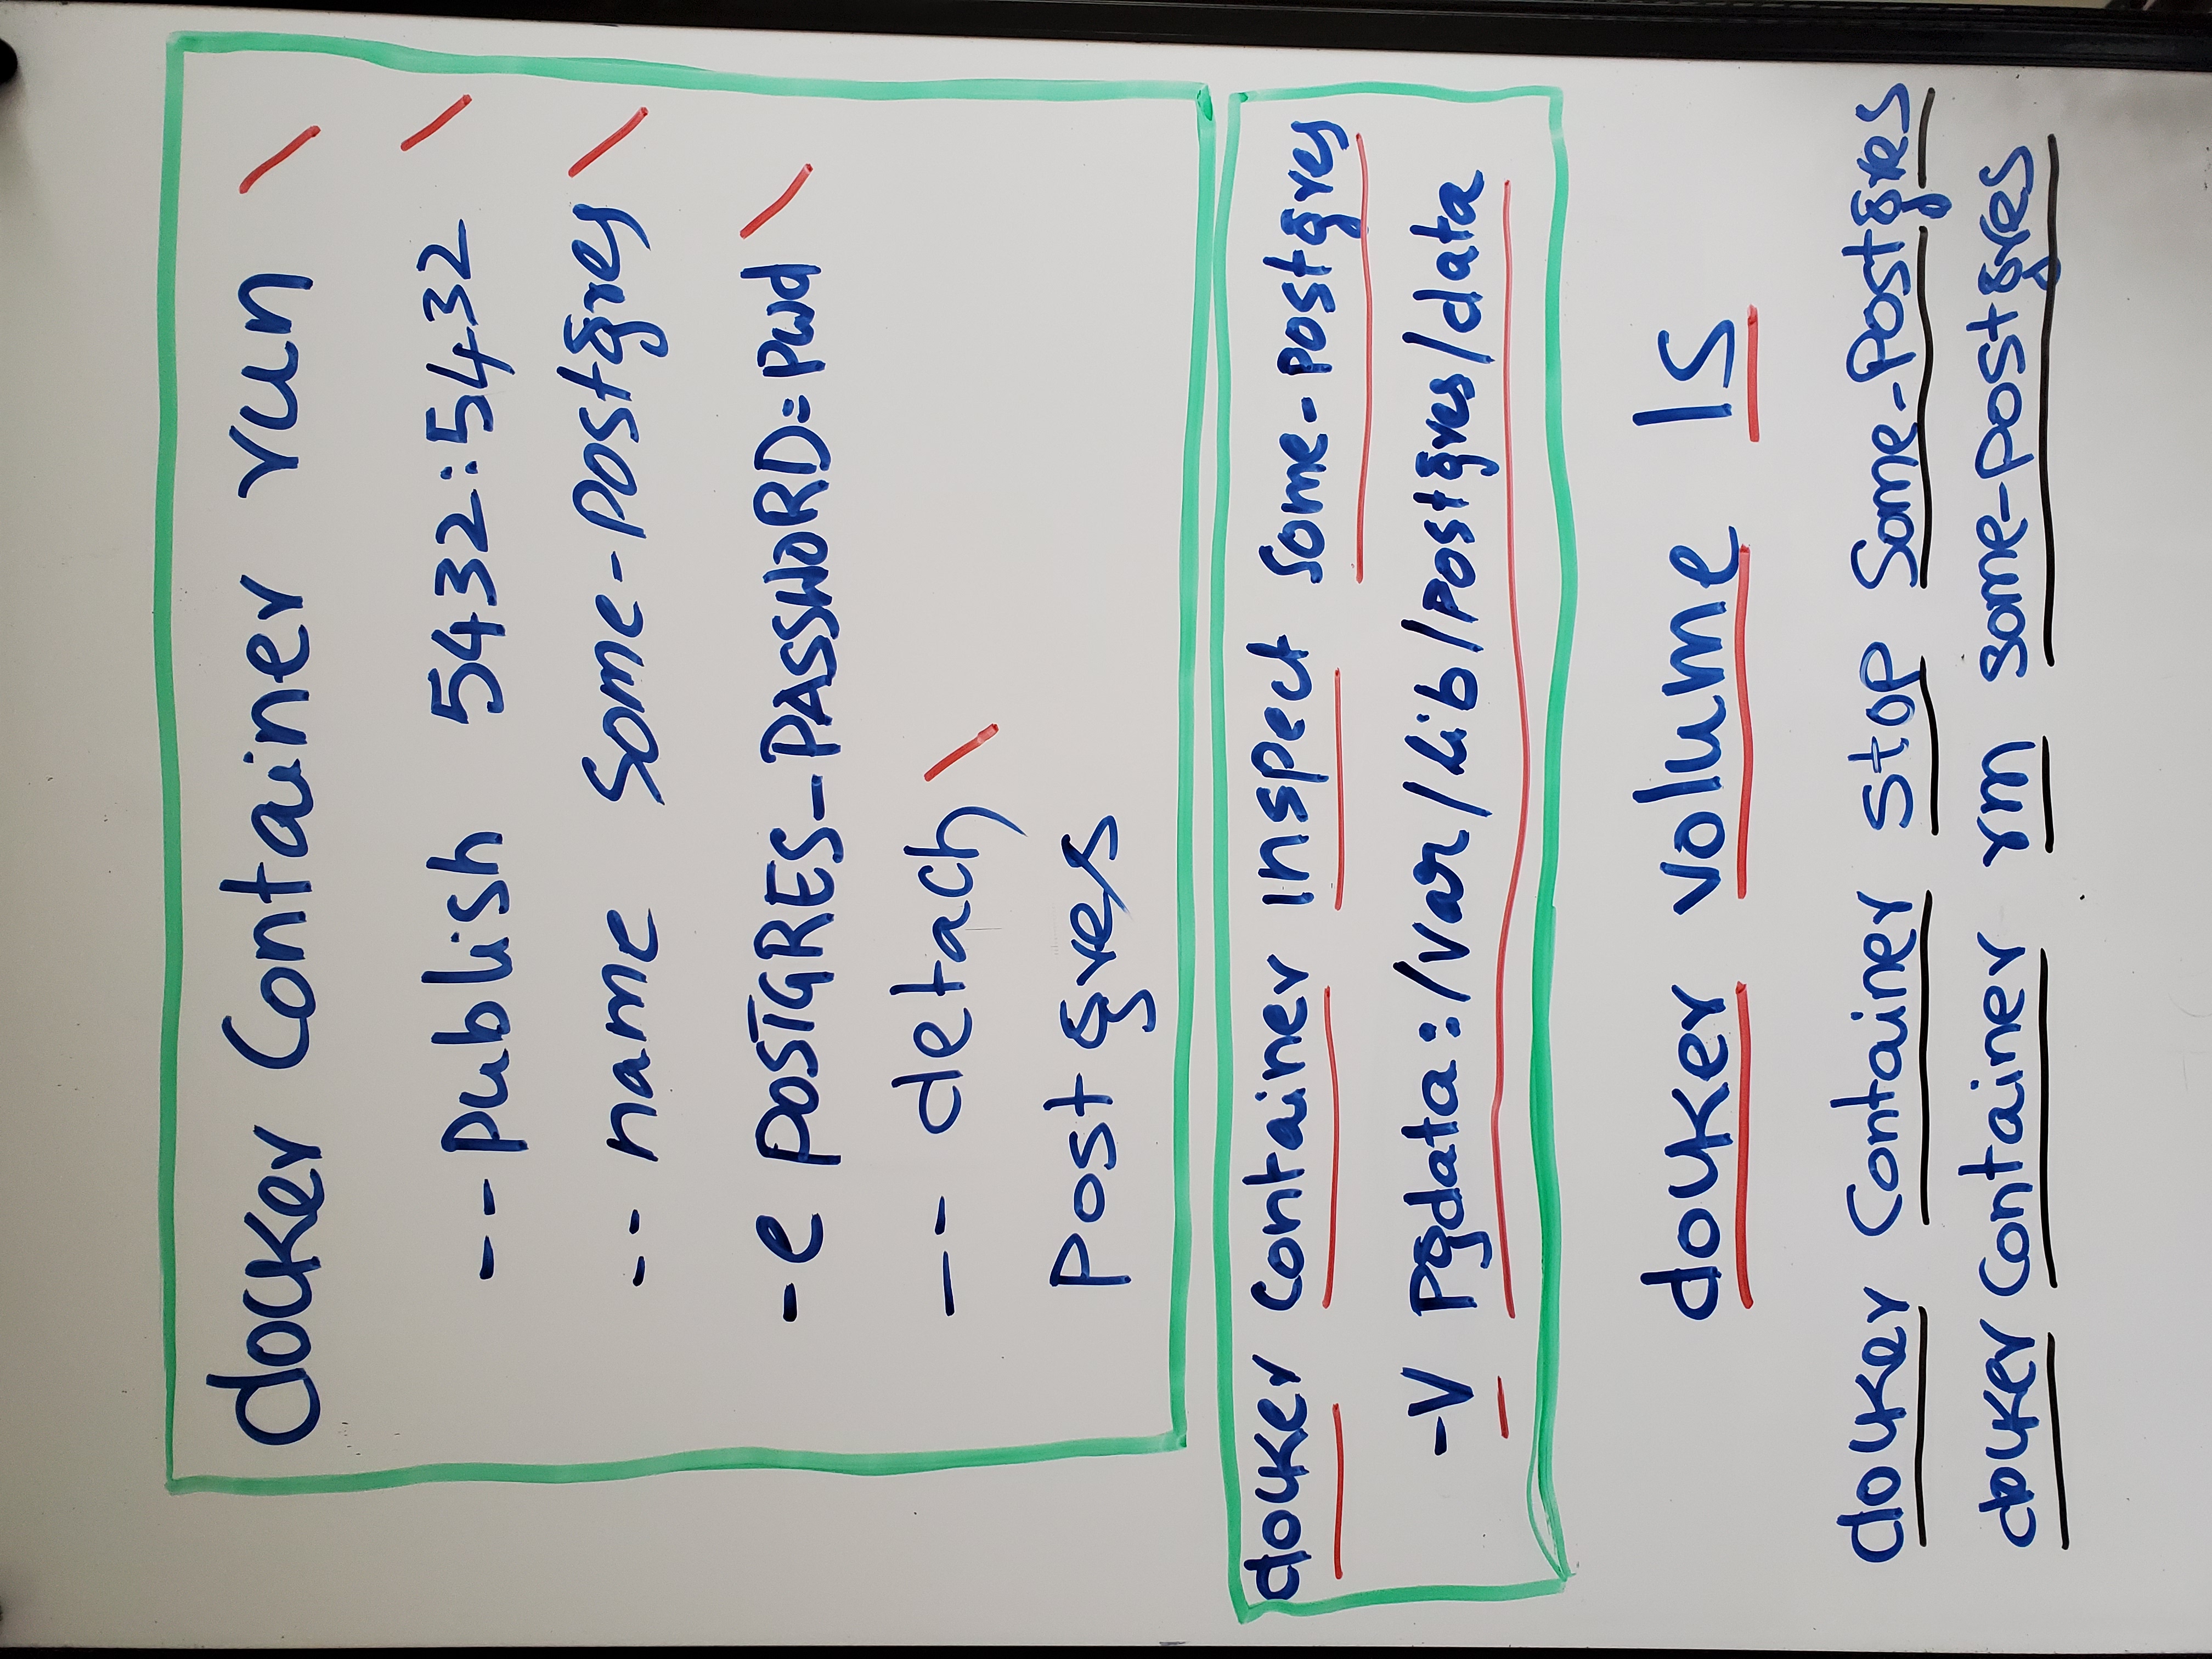 docker Container run \
--publish 5432:5432 \
-- name some-postgres \
-e POSTGRES_PASSWORD=pwd \
-- detach \
Postgres
docker container inspect some-postgres
-v pgdata:/var/lib/postgres/data
docker volume ls
docker Container stop Some-Postgres
docker container rm some-postgres